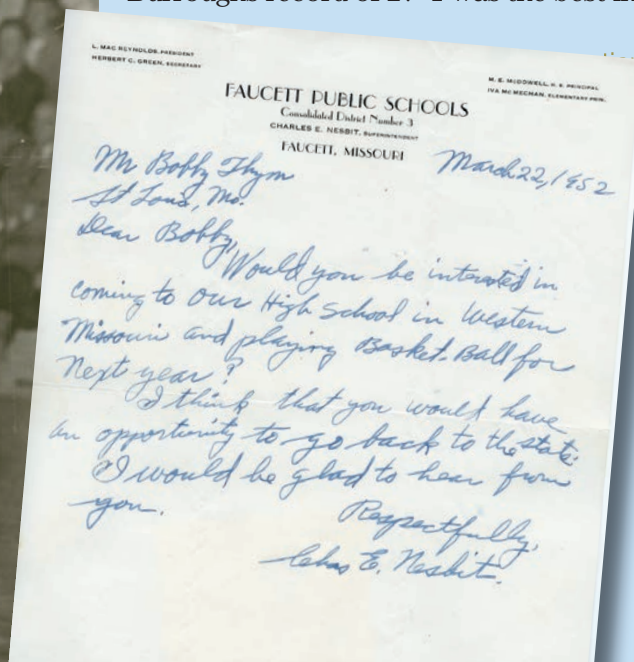 L. MAC REYNOLDS, PRESIDENT
HERBERT C. GREEN, SECRETARY
M. E. McDOWELL, H. S. PRINCIPAL
IVA McMECHAN, ELEMENTARY PRIN.
FAUCETT PUBLIC SCHOOLS
Consolidated District Number 3
CHARLES E. NESBIT, SUPERINTENDENT
FAUCETT, MISSOURI
March 22, 1952
Mr Bobby Thym
St Louis, Mo.
Dear Bobby,
Would you be interested in
coming to our High School in Western
Missouri and playing Basket-Ball for
Next year?
I think that you would have
an opportunity to go back to the state.
I would be glad to hear from
you.
Respectfully,
Chas E. Nesbit.